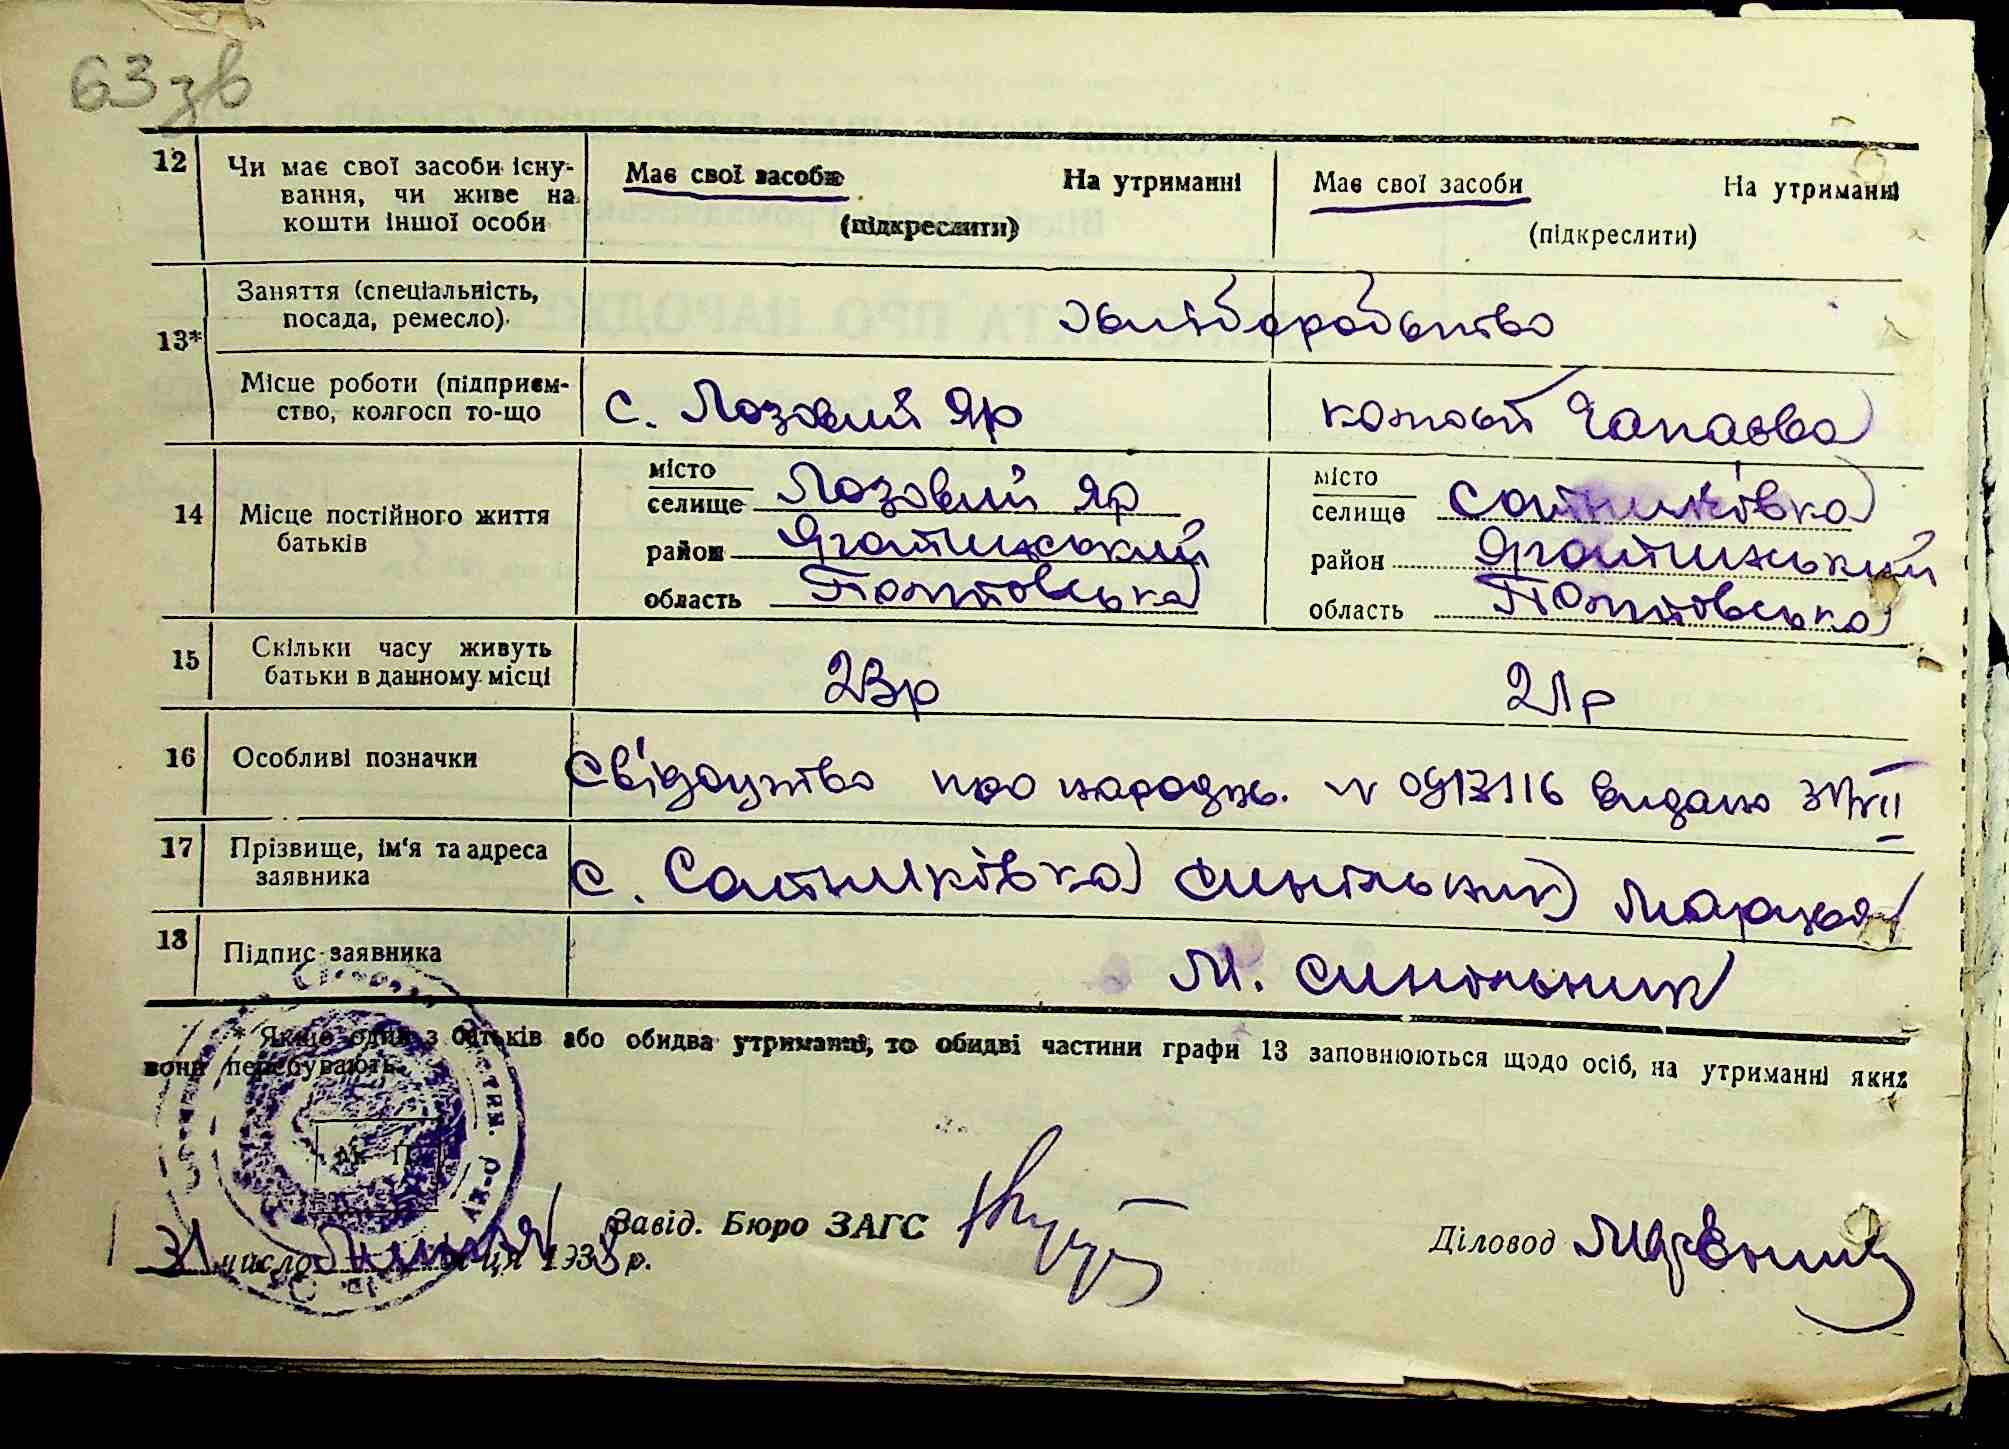 63 зв
12 Чи має свої засоби існу-
вання, чи живе на
кошти іншої особи
Має свої засоби На утриманні
(підкреслити)
Має свої засоби На утриманні
(підкреслити)
13*
Заняття (спеціальність,
посада, ремесло)
хліборобство
Місце роботи (підприєм-
ство, колгосп то-що
с. Лозовий Яр
Чапаєва
14 Місце постійного життя
батьків
місто
селище Лозовий Яр
район Яготинський
область Полтовська
місто
селище Сотниківка
район Яготинський
область Полтовська
15 Скільки часу живуть
батьки в данному місці
23р
21р
16 Особливі позначки
Свідоцтво про народж. № видано
17 Прізвище, ім'я та адреса
заявника
с. Сотниківка Синільник
18 Підпис заявника
М. Синільник
* Якщо один з батьків або обидва утриманці, то обидві частини графи 13 заповнюються щодо осіб, на утриманні яких
вони перебувають.
31 число Липня місяця 1938 р.
Завід. Бюро ЗАГС
Діловод